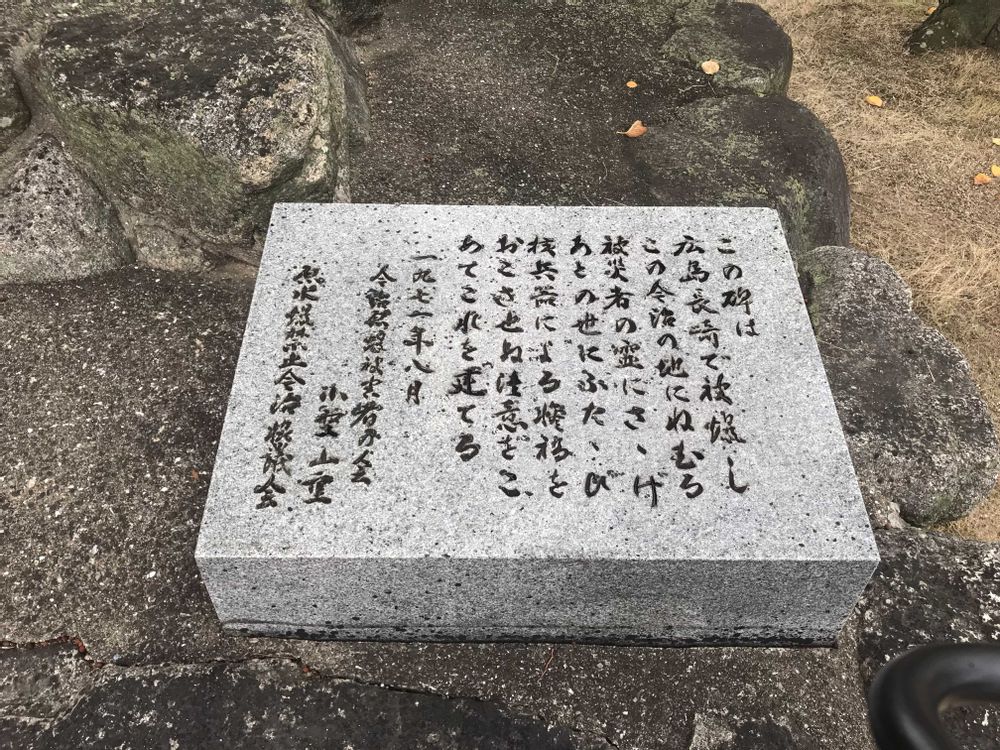 この碑は
広島長崎で被爆し
この今治の地にねむる
被災者の霊にさゝげ
あとの世にふたゝび
核兵器による惨禍を
おこさせぬ決意をこ
めてこれを建てる
一九七一年八月
今治原爆被害者の会
原水爆禁止今治協議会